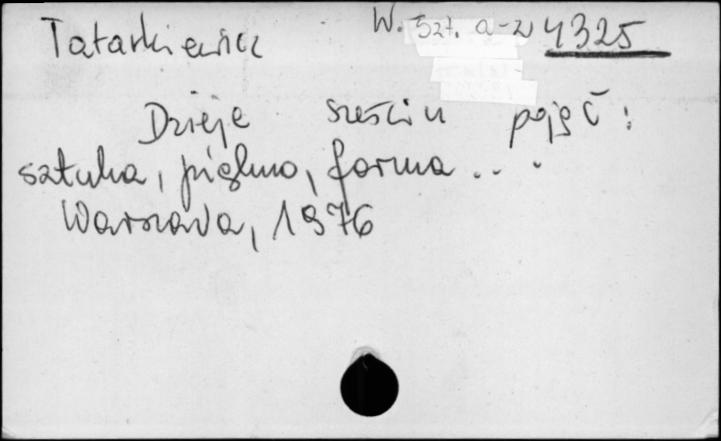 Tatarkiewicz
W. Szt. a-z 4325
Dzieje sześciu pojęć:
sztuka, piękno, forma ...
Warszawa, 1976